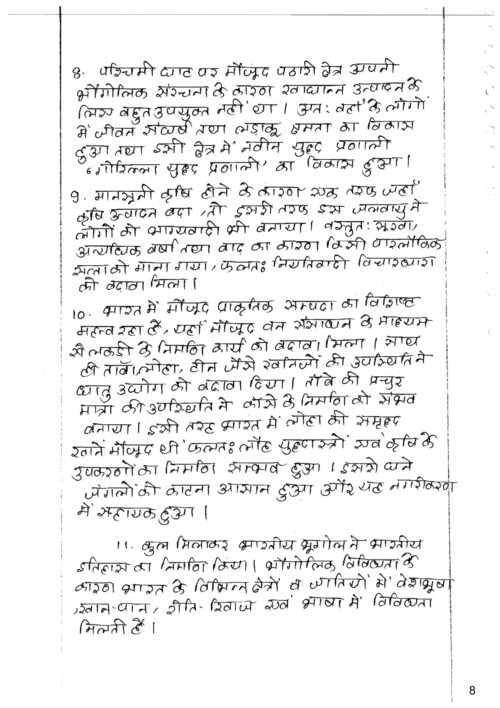 8. पश्चिमी घाट पर मौजूद पठारी क्षेत्र अपनी
भौगोलिक संरचना के कारण खाद्यान्न उत्पादन के
लिए बहुत उपयुक्त नहीं था। अतः वहाँ के लोगों
में जीवन संघर्ष तथा लड़ाकू क्षमता का विकास
हुआ तथा इसी क्षेत्र में नवीन युद्ध प्रणाली
'गोरिल्ला युद्ध प्रणाली' का विकास हुआ।
9. मानसूनी कृषि होने के कारण एक तरफ जहाँ
कृषि उत्पादन बढ़ा, तो दूसरी तरफ इस जलवायु ने
लोगों को भाग्यवादी भी बनाया। वस्तुतः सूखा,
अत्यधिक वर्षा तथा बाढ़ का कारण किसी पारलौकिक
सत्ता को माना गया, फलतः नियतिवादी विचारधारा
को बढ़ावा मिला।
10. भारत में मौजूद प्राकृतिक सम्पदा का विशिष्ट
महत्व रहा है, यहाँ मौजूद वन संसाधन के माध्यम
से लकड़ी के निर्माण कार्य को बढ़ावा मिला। साथ
ही तांबा, लोहा, टीन जैसे खनिजों की उपस्थिति ने
धातु उद्योग को बढ़ावा दिया। ताँबे की प्रचुर
मात्रा की उपस्थिति ने काँसे के निर्माण को संभव
बनाया। इसी तरह भारत में लोहा की समृद्ध
खानें मौजूद थीं फलतः लौह युद्धास्त्रों एवं कृषि के
उपकरणों का निर्माण सम्भव हुआ। इससे घने
जंगलों को काटना आसान हुआ और यह नगरीकरण
में सहायक हुआ।
11. कुल मिलाकर भारतीय भूगोल ने भारतीय
इतिहास का निर्माण किया। भौगोलिक विविधता के
कारण भारत के विभिन्न क्षेत्रों व जातियों में वेशभूषा
, खान-पान, रीति-रिवाज एवं भाषा में विविधता
मिलती है।
8